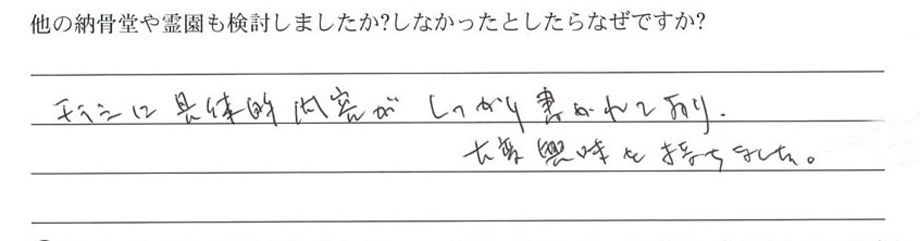 他の納骨堂や霊園も検討しましたか?しなかったとしたらなぜですか?
チラシに具体的内容がしっかり書かれており、
大変興味を持ちました。